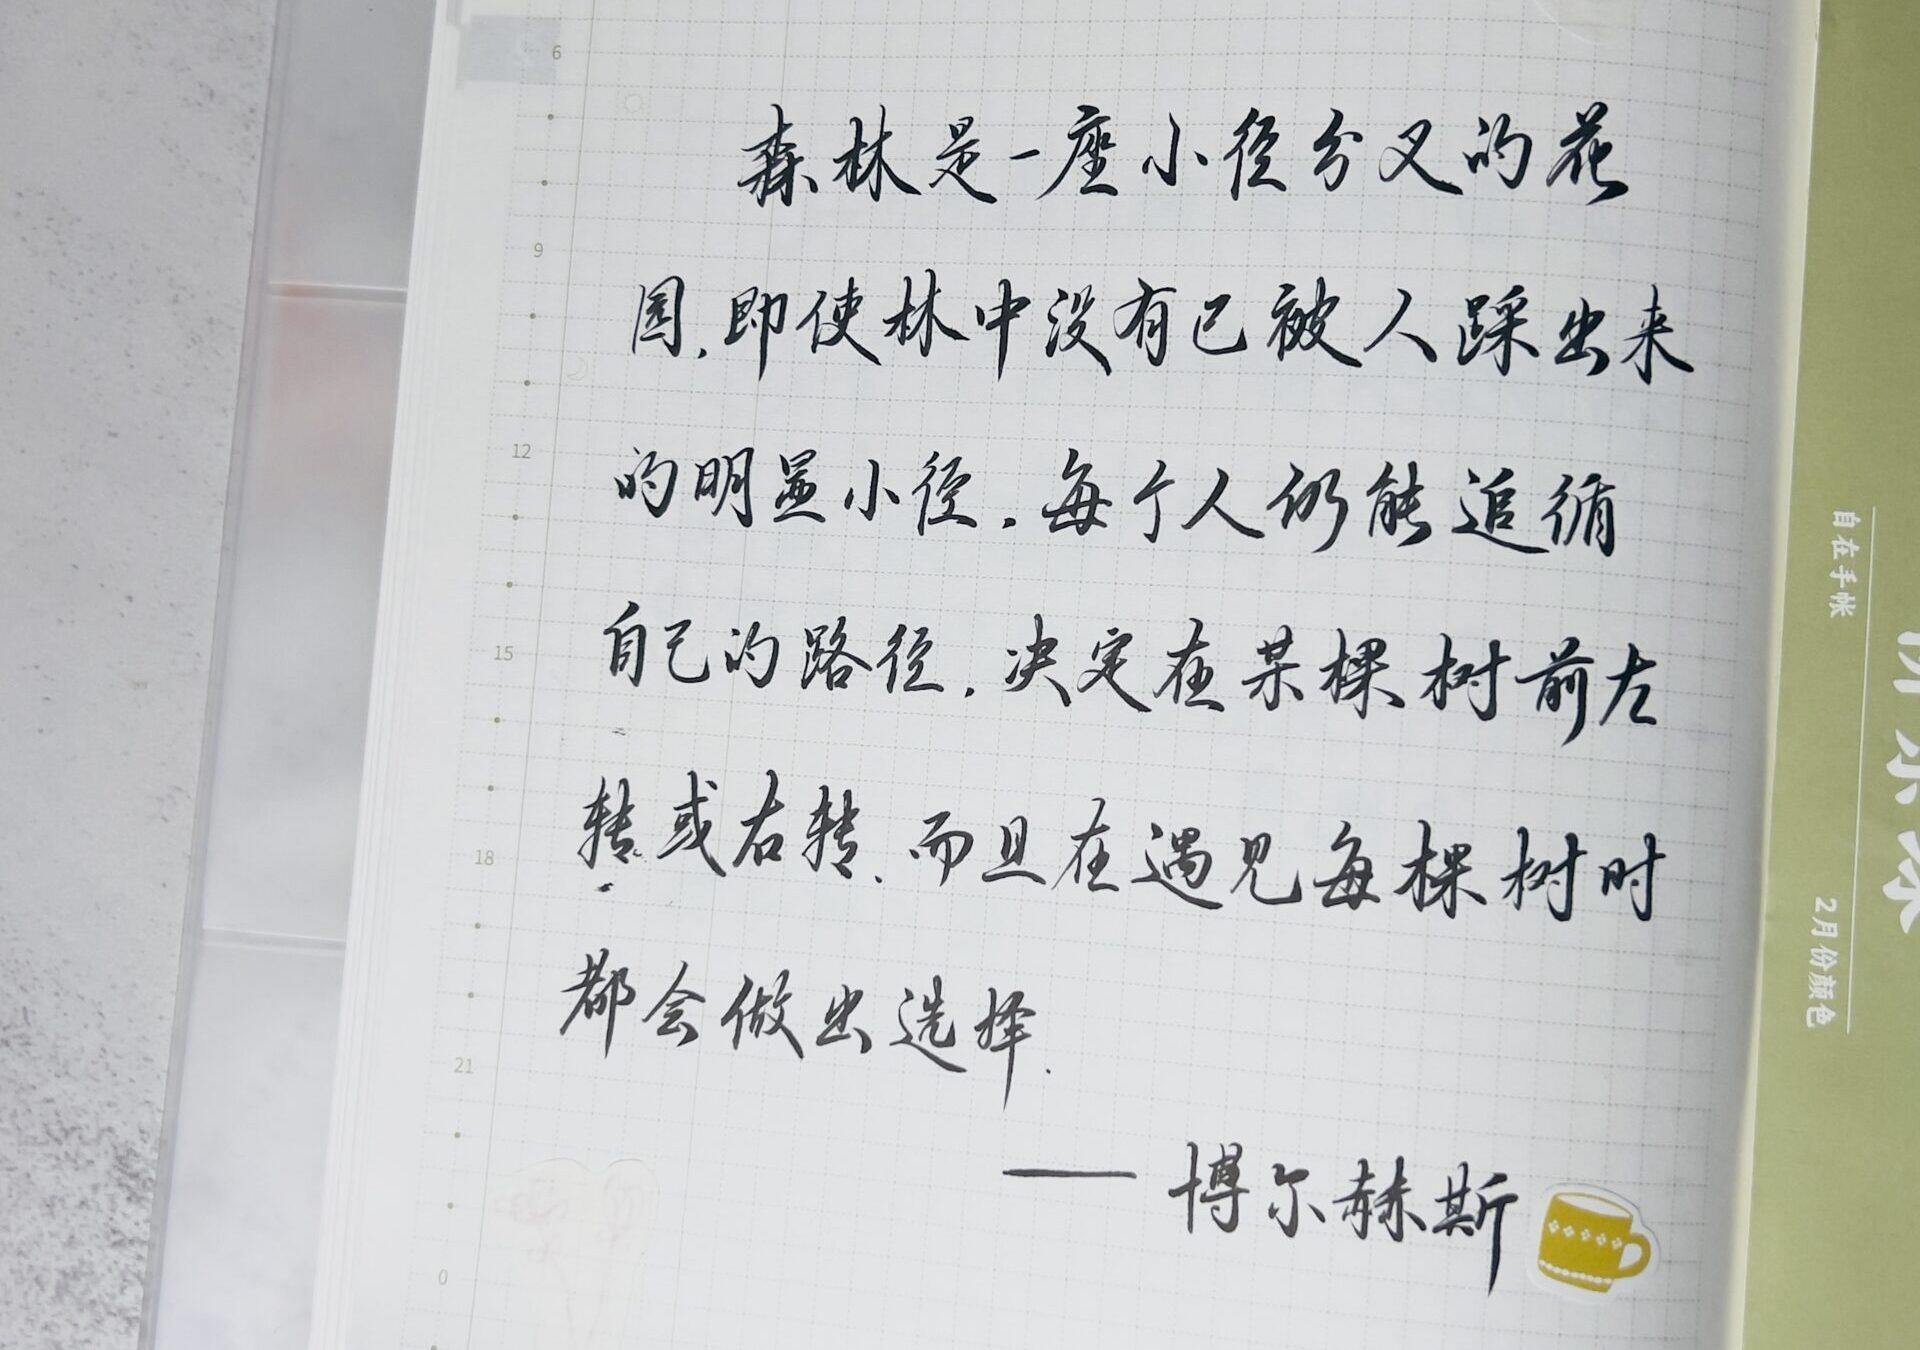 6
森林是一座小径分叉的花
9
园,即使林中没有已被人踩出来
12
的明显小径,每个人仍能追循
15
自己的路径,决定在某棵树前左
18
转或右转,而且在遇见每棵树时
都会做出选择.
21
——博尔赫斯
0
自在手帐
2月份颜色